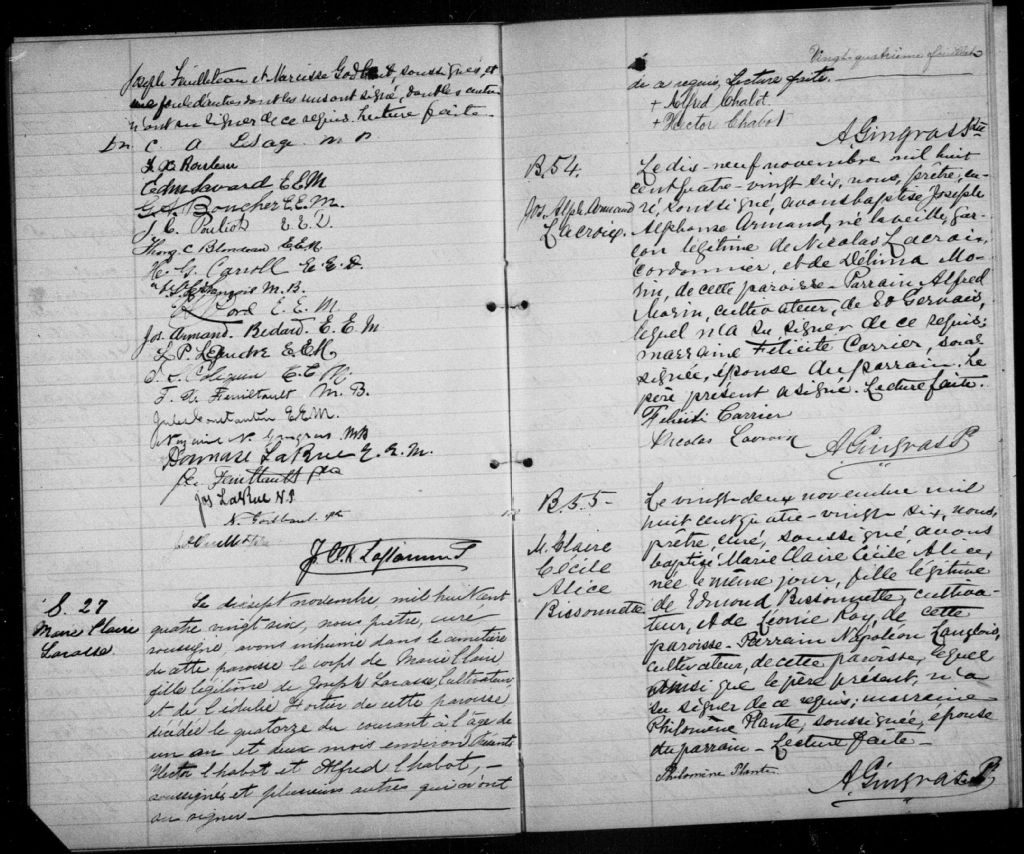 Joseph Feuilleteau et Narcisse Godbout soussignés, et
une foule d'autres dont les uns ont signé, dont les autres
n'ont su signer de ce requis. Lecture faite.
C A Lesage M P
F. X Rouleau
Edm Savard E.E.M
G. A. Boucher E.E.M.
J. E. Pouliot E.E.D.
Thos C Blondeau E.E.M
H. G. Carroll E.E.D.
M.B.
E.E.M.
Jos. Armand. Bedard. E.E.M
L. P. E.E.M.
E.E.M.
J. Feuilteault M.B.
Jules Constantin E.E.M.
N. Gingras MB
Damase LaRue E.E.M.
Feuilteault ptre
Jos LaRue N.P.
N. Godbout. ptre
S. 27
Marie Claire
Lacasse
Le dixsept novembre mil huit cent
quatre vingt six, nous prêtre, curé
soussigné, avons inhumé dans le cimetière
de cette paroisse le corps de Marie Claire
fille légitime de Joseph Lacasse, Cultivateur
et de Cédulie Fortier de cette paroisse
décédée le quatorze du courant à l'age de
un an et deux mois environ. Présents
Hector Chabot et Alfred Chabot, –
soussignés et plusieurs autres qui n'ont
su signer
Vingt-quatrième feuillet
de ce requis, Lecture faite.
+ Alfred Chalot.
+ Hector Chabot
A Gingras Ptre
B. 54.
Jos. Alph. Armand
Lacroix.
Le dix-neuf novembre mil huit
cent quatre-vingt six, nous, prêtre, cu-
ré, soussigné, avons baptisé Joseph
Alphonse Armand, né la veille, gar-
çon légitime de Nicolas Lacroix,
cordonnier, et de Délima Mo-
rin, de cette paroisse – Parrain Alfred
Morin, cultivateur, de St Gervais,
lequel n'a su signer de ce requis;
marraine Félicité Carrier, sous-
signée, épouse du parrain. Le
père présent a signé. Lecture faite.
Félicité Carrier
Nicolas Lacroix
A Gingras P
B. 55 –
M. Claire
Cécile
Alice
Bissonnette
Le vingt-deux novembre mil
huit cent quatre-vingt six, nous,
prêtre, curé, soussigné avons
baptisé Marie Claire Cécile Alice,
née le même jour, fille légitime
de Edmond Bissonnette, cultiva-
teur, et de Léonie Roy, de cette
paroisse – Parrain Napoléon Langlois,
cultivateur, de cette paroisse, lequel
ainsi que le père présent, n'a
su signer de ce requis; marraine
Philomène Plante, soussignée, épouse
du parrain – Lecture faite –
Philomène Plante
A Gingras P